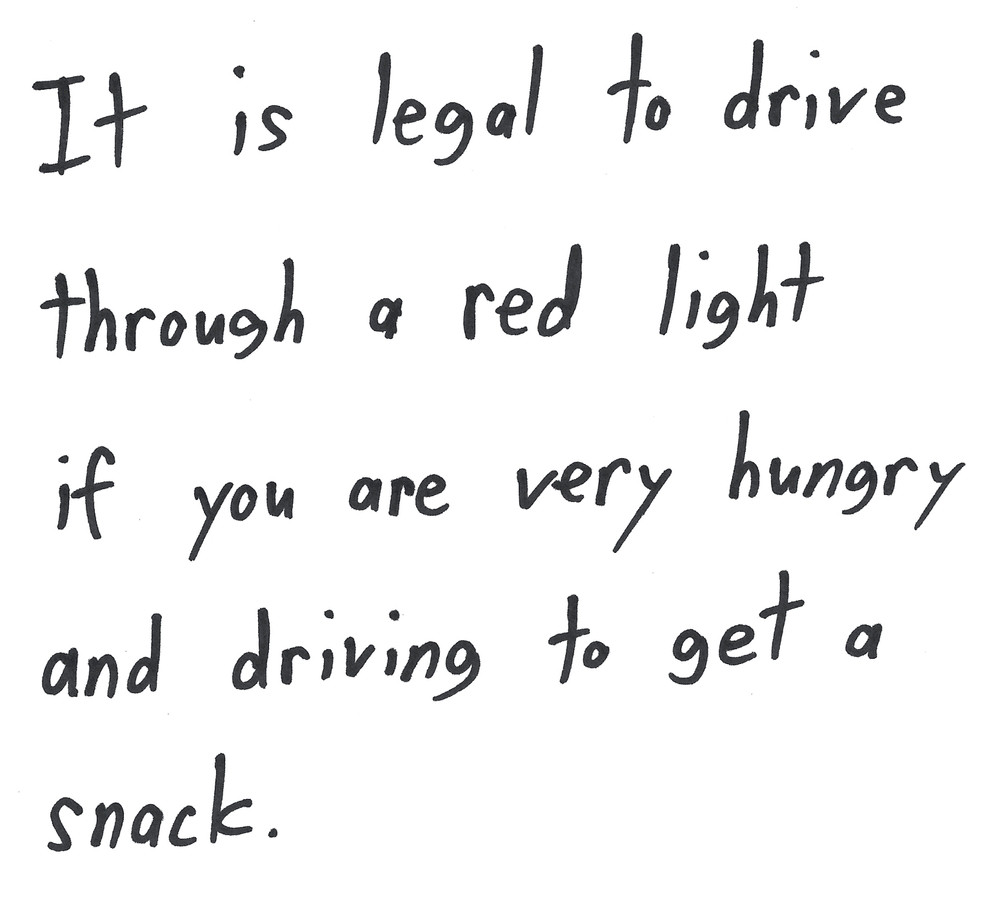 It is legal to drive
through a red light
if you are very hungry
and driving to get a
snack.